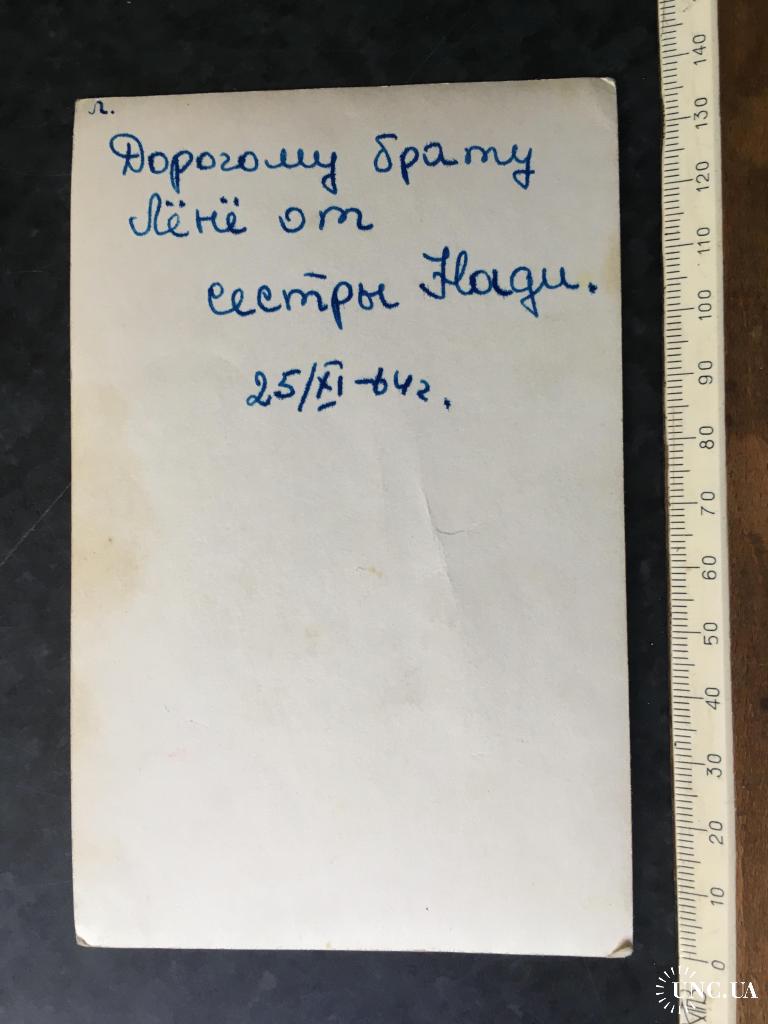 л.
Дорогому брату
Лёнё от
сестры Нади.
25/XI-64г.
140
130
120
110
100
90
80
70
60
50
40
30
20
10
0
UNC.UA